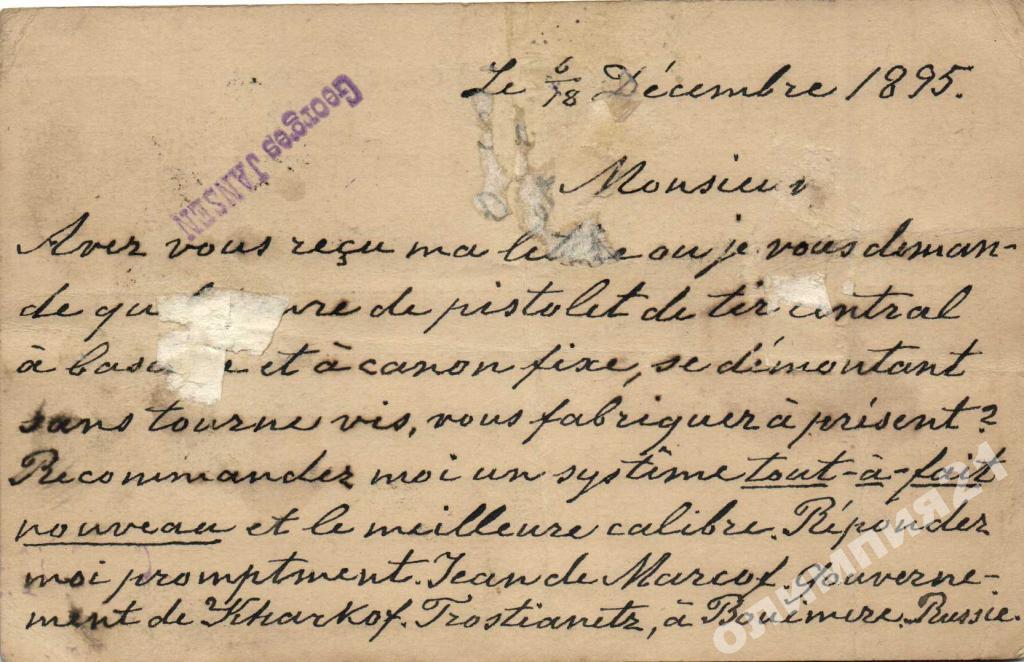 Le 6/18 Décembre 1895.
Georges JANSEN
Monsieur
Avez vous reçu ma lettre ou je vous deman-
de qu re de pistolet de tir central
à bascule et à canon fixe, se démontant
sans tourne vis, vous fabriquer à présent?
Recommandez moi un systême tout-à-fait
nouveau et le meilleure calibre. Répondez
moi promptment. Jean de Marcof. Gouverne-
ment de Kharkof. Trostianetz, à Boüimere. Russie.
олимпия21